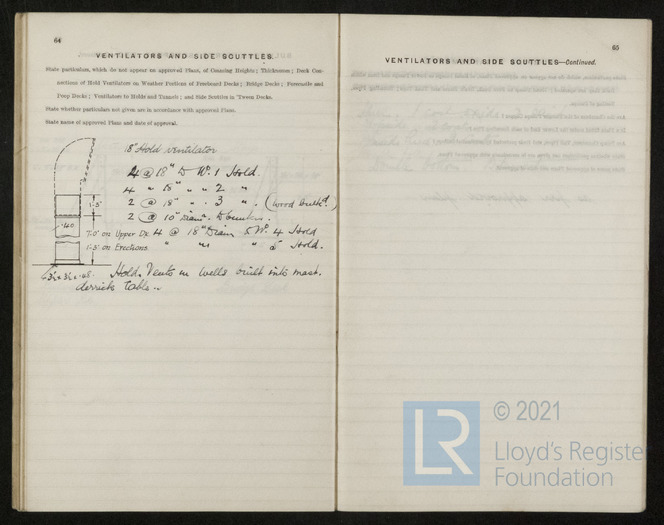 64
VENTILATORS AND SIDE SCUTTLES.
State particulars, which do not appear on approved Plans, of Coaming Heights; Thicknesses; Deck Con-
nections of Hold Ventilators on Weather Portions of Freeboard Decks; Bridge Decks; Forecastle and
Poop Decks; Ventilators to Holds and Tunnels; and Side Scuttles in 'Tween Decks.
State whether particulars not given are in accordance with approved Plans.
State name of approved Plans and date of approval.
18" Hold ventilator
4 @ 18" D No. 1 Hold.
4 " 18" " " 2 "
2 @ 18" " " 3 " . (Wood Bulkd.)
2 @ 10" Diam. To bunker.
1'-3"
.40
7'-0" on Upper Dk. 4 @ 18" Diam to No. 4 Hold
1'-3" on Erections. " " " 5 Hold.
Hold. Vents in wells built into mast.
derrick table.
65
VENTILATORS AND SIDE SCUTTLES—Continued.
© 2021
LR
Lloyd's Register
Foundation